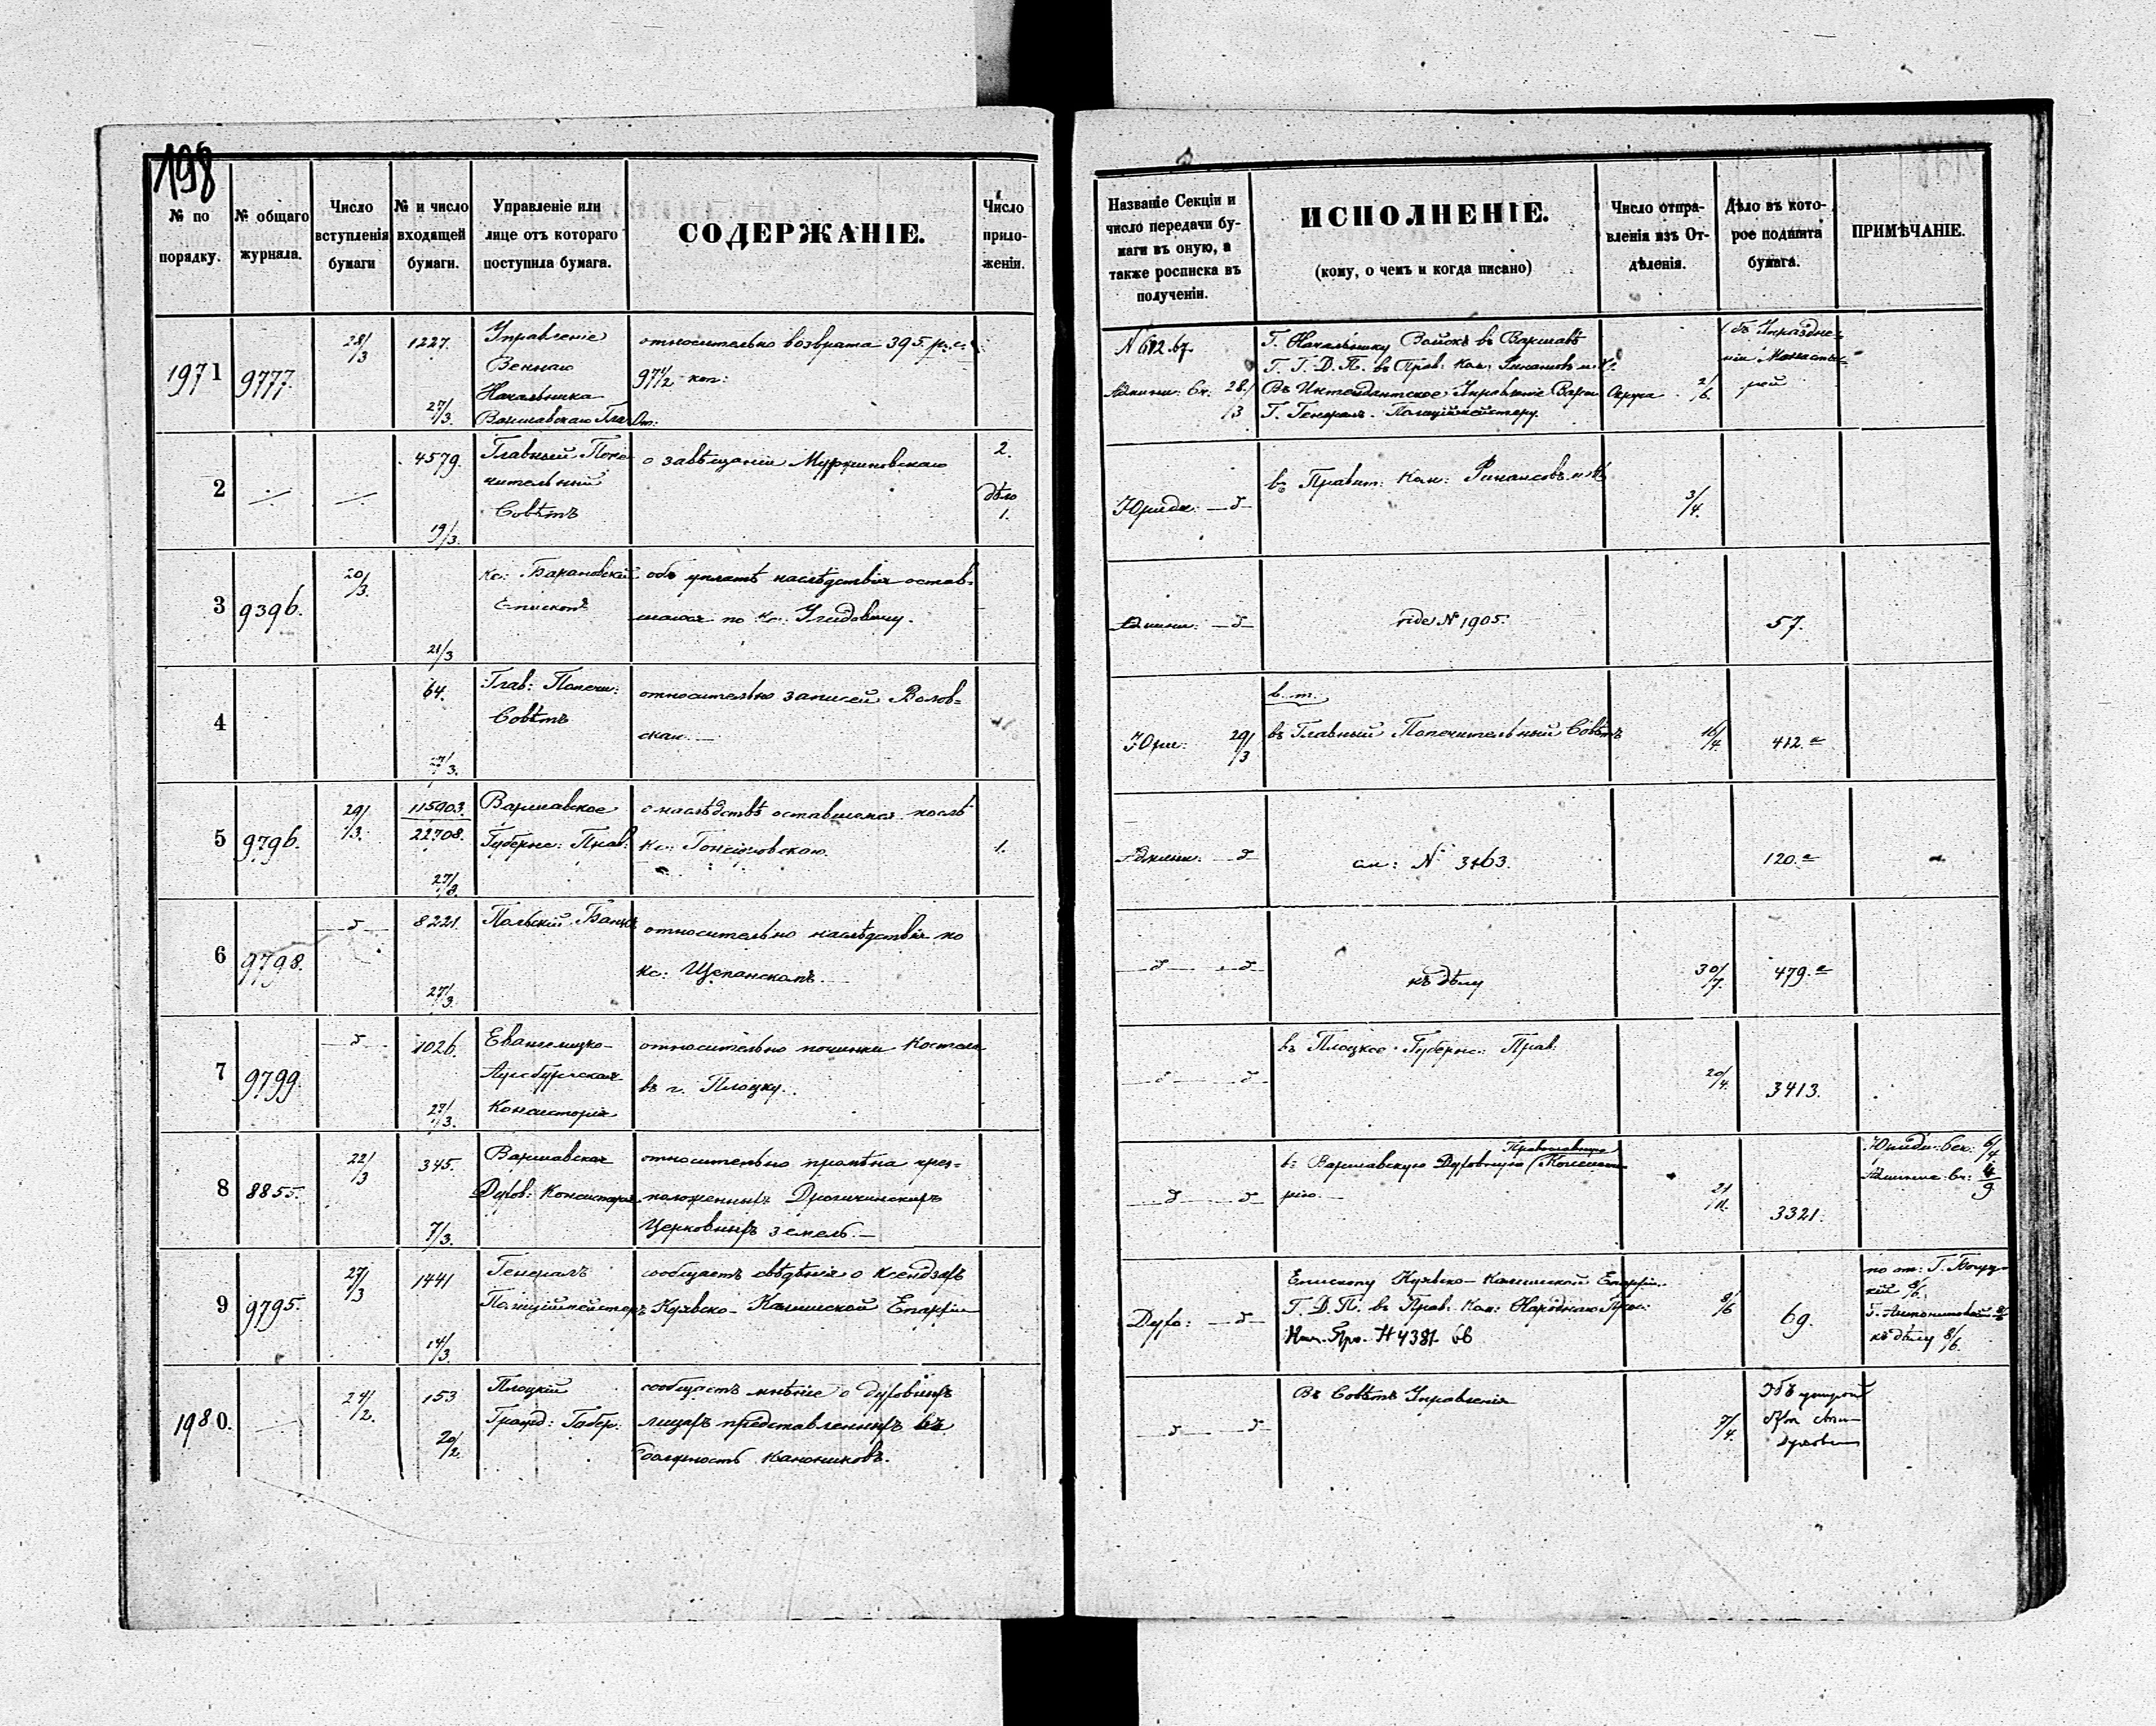 198
№ по порядку.
№ общаго журнала.
Число вступленія бумаги
№ и число входящей бумаги.
Управленіе или лице отъ котораго поступила бумага.
СОДЕРЖАНІЕ.
Число приложеніи.
Названіе Секціи и число передачи бумаги въ оную, а также росписка въ полученіи.
ИСПОЛНЕНІЕ.
(кому, о чемъ и когда писано)
Число отправленія изъ Отдѣленія.
Дѣло въ которое подшита бумага.
ПРИМѢЧАНІЕ.
1971
9777.
28/3
1227.
27/3.
Управленіе
Военнаго
Начальника
Варшавскаго
относительно возврата 395 р. с.
97½ коп:
N 612. 67.
28/3
Г. Начальнику Войскъ въ Варшавѣ
Г. Г. Д. П. въ Прав: Ком: Финансовъ
Въ Интендантское Управленіе Варш Округа
Г. Генералъ-Полиціймейстеру
2/6.
4579.
19/3.
Главный Попе-
чительный
Совѣтъ
о завѣщаніи
2.
дѣло
1.
2
Юриди: —д—
въ Правит: Ком: Финансовъ
3/4.
3
9396.
20/3.
21/3
Кс: Барановскій
Епископъ
объ уплатѣ наслѣдствія остав-
шагося по Кс.
Админи: —д—
vide № 1905.
57.
4
64.
27/3.
Глав: Попечи:
Совѣтъ
относительно записей Волов-
ская —
Юри: 29/3
въ Главный Попечительный Совѣтъ
16/4.
412. а
5
9796.
29/3.
115903.
22708.
27/3.
Варшавское
Губернс: Прав:
о наслѣдствѣ оставшемся послѣ
Кс:
1.
Админи: —д
см: № 3463.
120. а
6
9798.
—д—
8221.
27/3.
Польскій Банкъ
относительно наслѣдствія по
кс: Щепанскомъ.
—д— —д—
къ дѣлу
30/7.
479. а
7
9799.
—д—
1026.
27/3.
Евангелицко-
Аугсбургская
Консисторія
относительно починки Костела
въ г. Плоцку.
—д— —д
въ Плоцкое Губернс: Прав:
20/4.
3413.
8
8855.
22/3
345.
7/3.
Варшавская
Духов: Консисторія
относительно промѣна чрез-
положенныхъ Дрогичинскихъ
Церковныхъ земель. —
—д— —д
въ Варшавскую Духовную Православную Консисто-
рію. —
21/11.
3321.
Юриди: Сек: 6/4
9
9795.
27/3
1441
14/3.
Генералъ
Полиціймейстеръ
сообщаетъ свѣдѣнія о Ксендзахъ
Куявско-Калишской Епархіи
Духо: —д—
Епископу Куявско-Калишской Епархіи.
Г. Д. П. въ Прав: Ком: Народнаго Прос:
№ 4381. 66
8/6
69.
къ дѣлу 8/6.
1980.
24/2.
153
20/2.
Плоцкій
Гражд: Губер.
сообщаетъ мнѣніе о духовныхъ
лицахъ представленныхъ въ
должность канониковъ.
—д— —д—
Въ Совѣтъ Управленія
7/4.